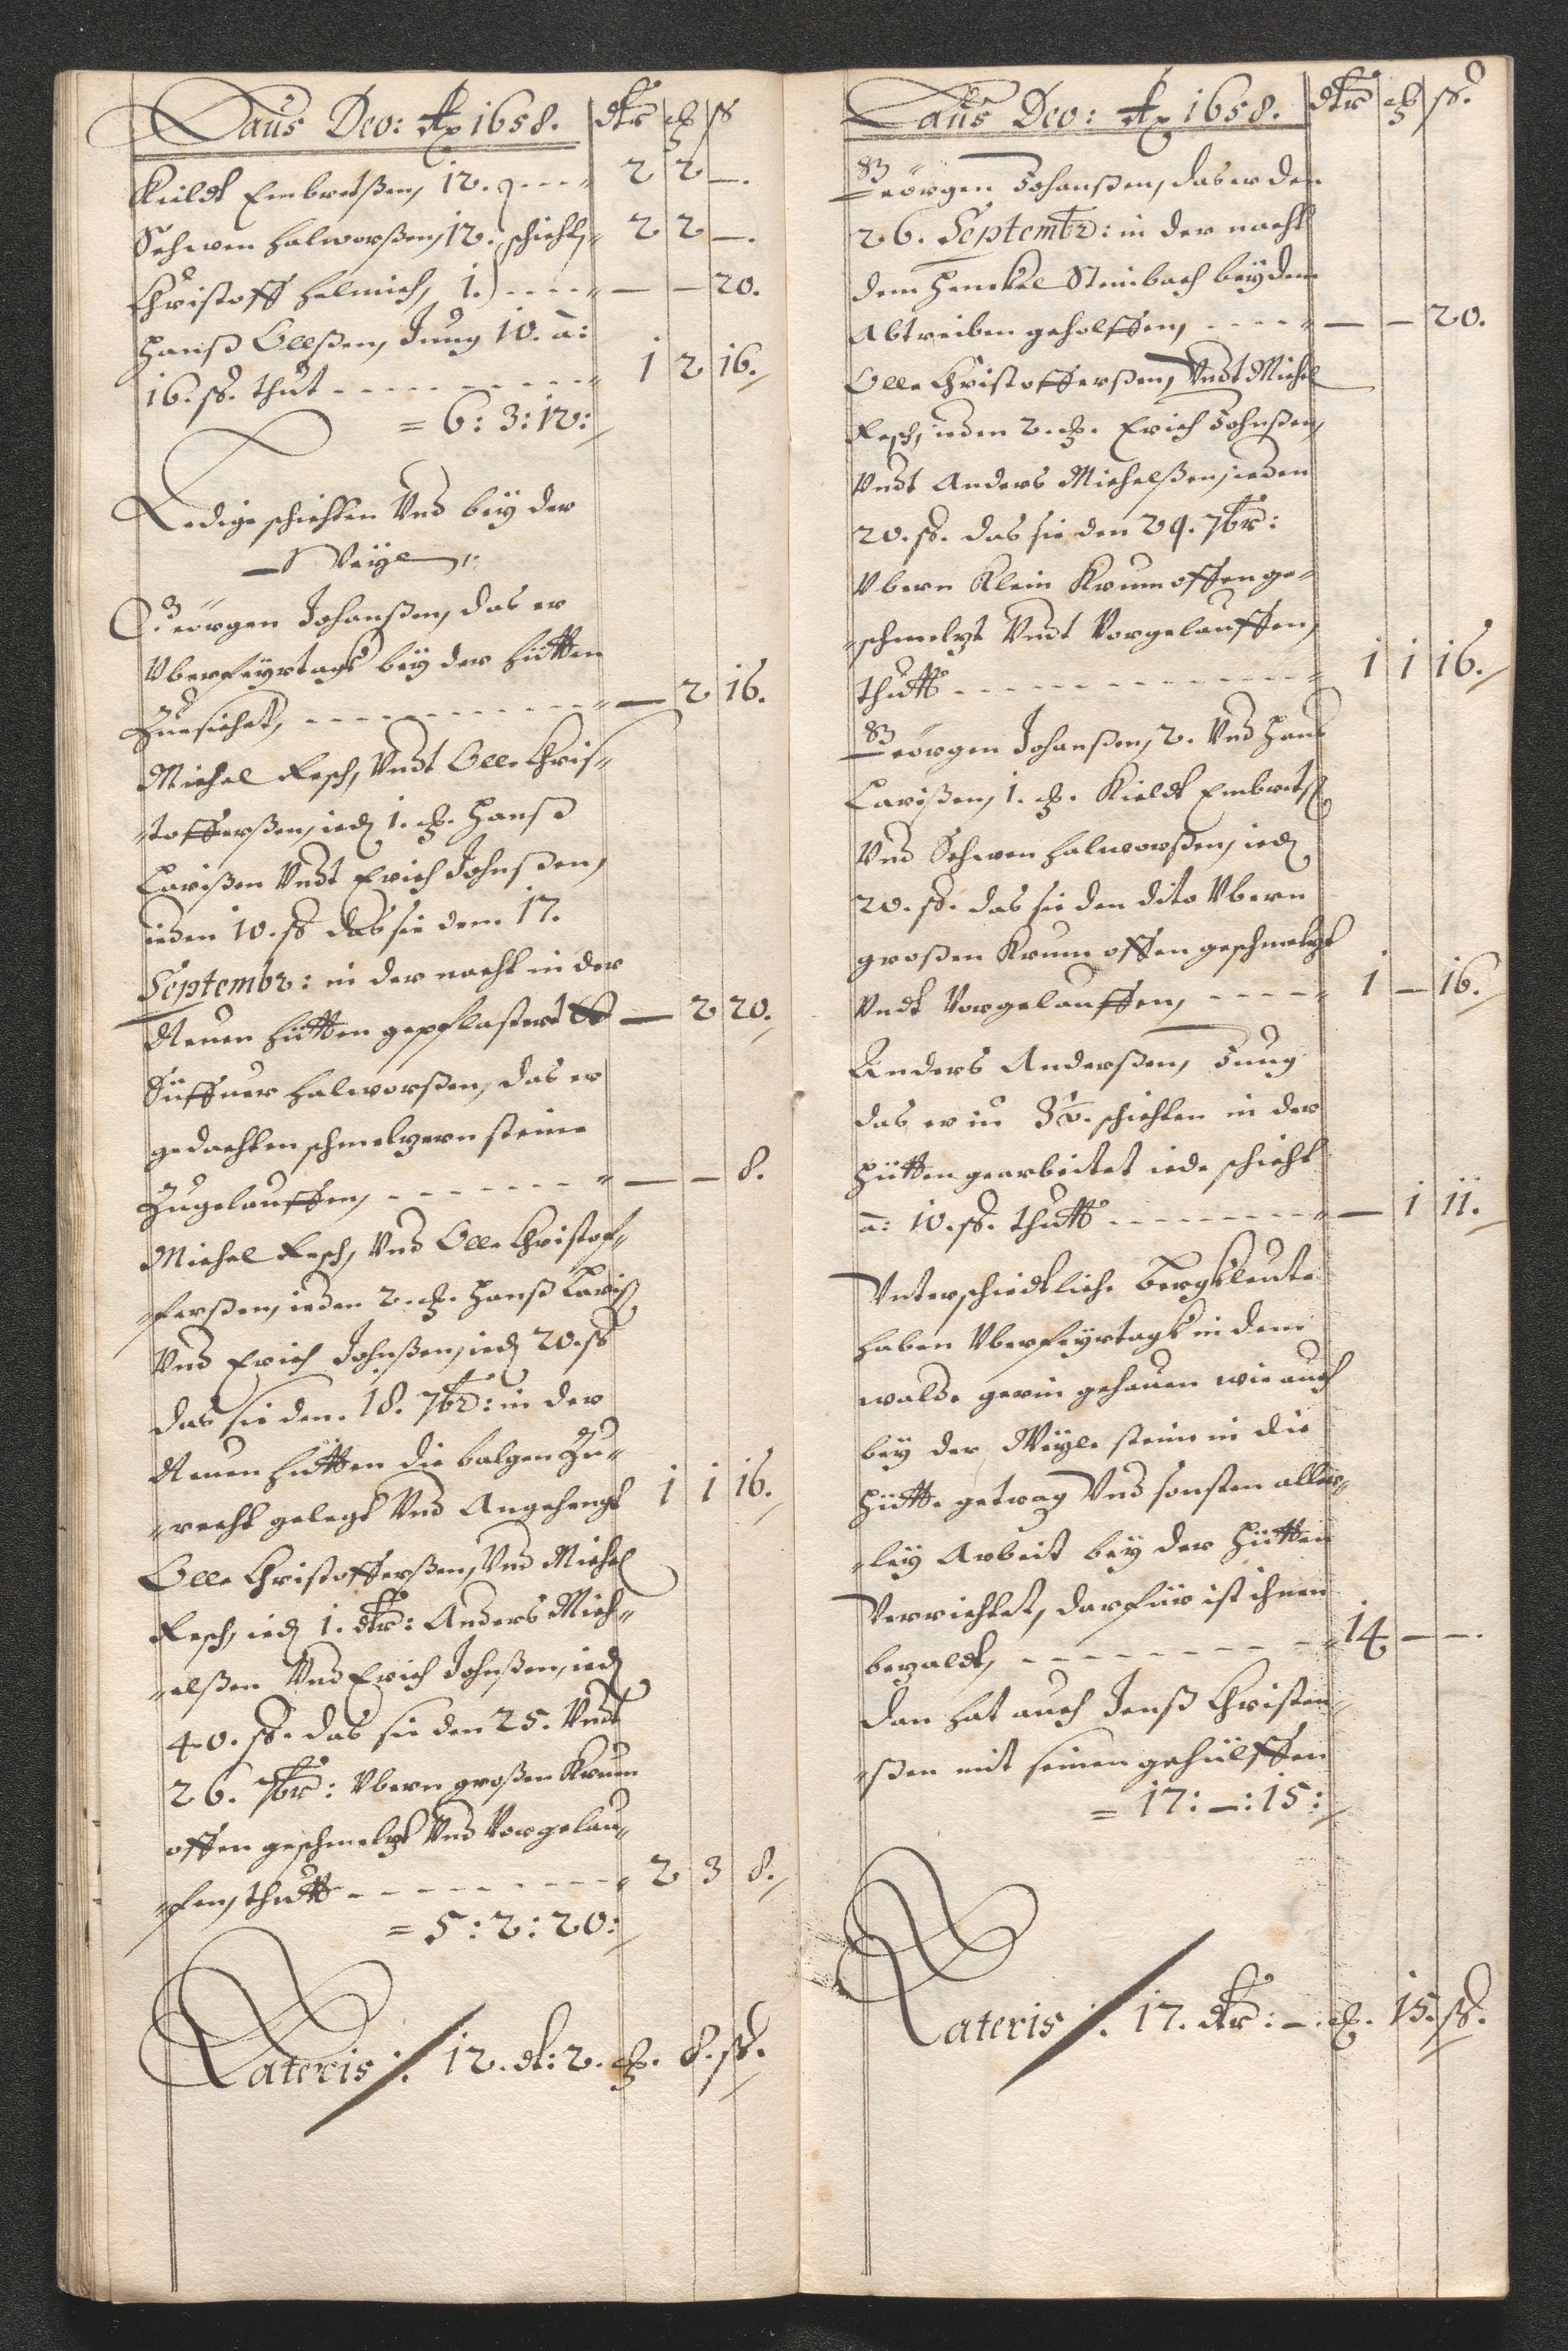 Laus Deo: Ao 1658. dlr ꝗ ß
Kieldt Embretßen, 12. 2 2 —.
Schwen Halworßen, 12. schicht, 2 2 —.
Christoff Helmich, 1. — — 20.
Hanß Ollßen, Jung 10. a:
16. ß. thut 1 2 16.
= 6: 3: 12:
Ledige schichten Und bey der
Weyle
Geörgen Johanßen, das er
Uberfeyrtagk bey der hütten
Zuesiehet, — 2 16.
Michel Resch, Undt Olle Chris-
-tofferßen, ied 1. ꝗ. Hanß
Larißen Undt Erich Johnßen,
ieden 10. ß das sie dem 17.
Septembr: in der nacht in der
Neuen hütten gepflastert — 2 20.
Halworßen, das er
gedachten schmelzern steine
Zugelauffen, — — 8.
Michel Resch, Und Olle Christof-
-ferßen, ieden 2. ꝗ. Hanß Lariß
Und Erich Johnßen, ied 20. ß
das sie den 18. 7br: in der
Neuen hütten die balgen Zu-
-recht gelegt Und Angehengt 1 1 16.
Olle Christofferßen, Und Michel
Resch, ied 1. dlr: Anders Mich-
-elßen Und Erich Johnßen, ied
40. ß. das sie den 25. Undt
26. 7br: Ubern großen Krum
offen geschmeltzt Und Vorgelau-
-fen, thutt 2 3 8.
= 5: 2: 20:
Lateris ⁒. 12. dl: 2. ꝗ. 8. ß.
Laus Deo: Ao 1658. dlr ꝗ ß.
Geörgen Johanßen, das er den
26. Septembr: in der nacht
dem Henckel Steinbach bey dem
Abtreiben geholffen, — — 20.
Olle Christofferßen, Undt Michel
Resch, ieden 2. ꝗ. Erich Johnßen,
Undt Anders Michelßen, ieden
20. ß. das sie den 29. 7br:
Ubern Klein Krumoffen ge-
-schmeltzt Undt Vorgelauffen,
thutt 1 1 16.
Geörgen Johanßen, 2. Und Hanß
Larißen, 1. ꝗ. Kieldt Embretß
Und Schwen Halworßen, ied
20. ß. das sie den dito Ubern
großen Krum offen geschmeltzt
Undt Vorgelauffen, 1 — 16.
Anders Anderßen, Jung
das er in 3½. schichten in der
Hütten gearbeitet iede schicht
a: 10. ß. thutt — 1 11.
Unterschiedtliche Bergkleute
haben Uberfeyrtagk in dem
walde gehauen wie auch
bey der Weyle stein in die
Hütte getrag Und sonsten aller-
-ley Arbeit bey der Hütten
Verrichtet, darfür ist ihnen
bezaldt, 14 — —.
Dan hat auch Jenß Christen-
-ßen mit seinen gehülffen
= 17: —: 15:
Lateris ⁒. 17. dlr: —. ꝗ. 15. ß.